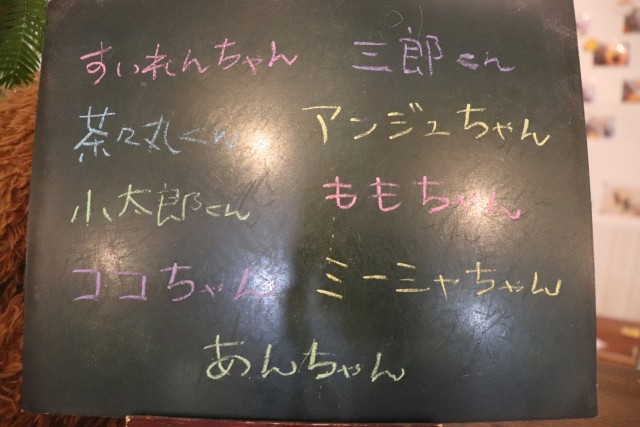 すいれんちゃん 三郎くん
茶々丸くん アンジュちゃん
小太郎くん ももちゃん
ココちゃん ミーシャちゃん
あんちゃん